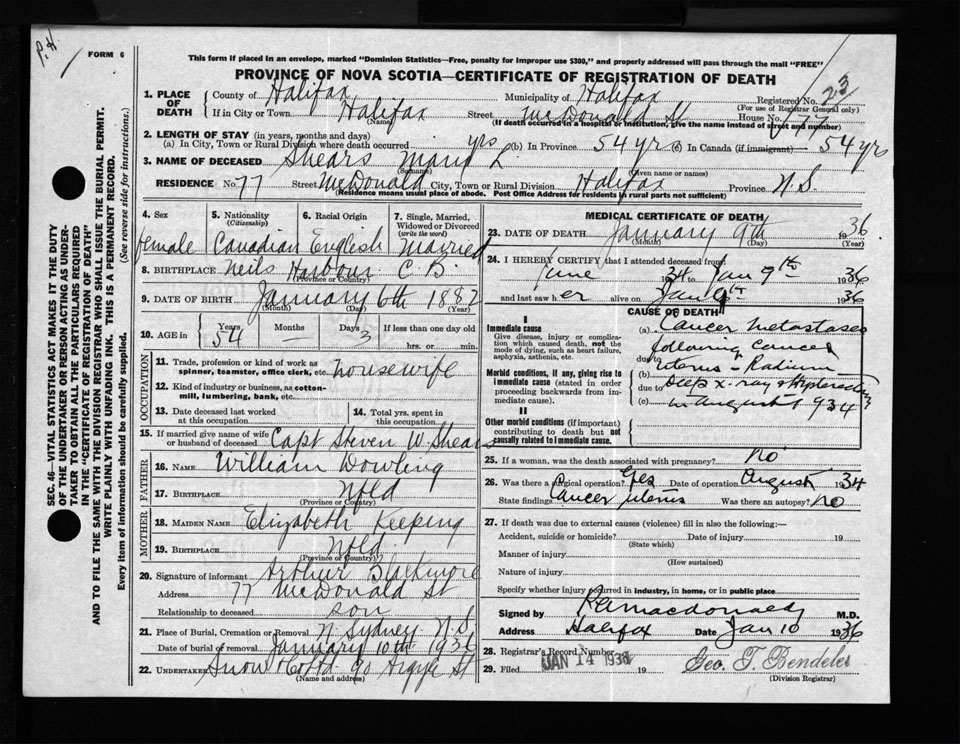 P.H.
FORM 6
This form if placed in an envelope, marked "Dominion Statistics—Free, penalty for improper use $300," and properly addressed will pass through the mail "FREE"
PROVINCE OF NOVA SCOTIA—CERTIFICATE OF REGISTRATION OF DEATH
SEC. 46—VITAL STATISTICS ACT MAKES IT THE DUTY
OF THE UNDERTAKER OR PERSON ACTING AS UNDER-
TAKER TO OBTAIN ALL THE PARTICULARS REQUIRED
IN THE "CERTIFICATE OF REGISTRATION OF DEATH"
AND TO FILE THE SAME WITH THE DIVISION REGISTRAR WHO SHALL ISSUE THE BURIAL PERMIT.
WRITE PLAINLY WITH UNFADING INK. THIS IS A PERMANENT RECORD.
Every item of information should be carefully supplied. (See reverse side for instructions.)
1. PLACE OF DEATH
County of Halifax Municipality of Halifax Registered No. 23
(For use of Registrar General only)
If in City or Town Halifax Street McDonald St House No. 77
(Name) (If death occurred in a hospital or institution, give the name instead of street and number)
2. LENGTH OF STAY (in years, months and days)
(a) In City, Town or Rural Division where death occurred yrs (b) In Province 54 yrs (c) In Canada (if immigrant) — 54 yrs
3. NAME OF DECEASED Shears Maud L.
(Surname) (Given name or names)
RESIDENCE No. 77 Street McDonald City, Town or Rural Division Halifax Province N.S.
(Residence means usual place of abode. Post Office Address for residents in rural parts not sufficient)
4. Sex female
5. Nationality (Citizenship) Canadian
6. Racial Origin English
7. Single, Married, Widowed or Divorced (write the word) Married
8. BIRTHPLACE Neils Harbour C.B.
(Province or Country)
9. DATE OF BIRTH January 6th 1882
(Month) (Day) (Year)
10. AGE in Years 54 Months — Days 3 If less than one day old
hrs. or min.
OCCUPATION
11. Trade, profession or kind of work as spinner, teamster, office clerk, etc. housewife
12. Kind of industry or business, as cotton-mill, lumbering, bank, etc.
13. Date deceased last worked at this occupation
14. Total yrs. spent in this occupation
15. If married give name of wife or husband of deceased Capt Steven W. Shears
FATHER
16. NAME William Dowling
17. BIRTHPLACE Nfld
(Province or Country)
MOTHER
18. MAIDEN NAME Elizabeth Keeping
19. BIRTHPLACE Nfld
(Province or Country)
20. Signature of informant Arthur Blackmore
Address 77 McDonald St
Relationship to deceased son
21. Place of Burial, Cremation or Removal N. Sydney N.S.
Date of burial or removal January 10th 1936
22. UNDERTAKER Snow & Co Ltd 90 Argyle St
(Name and address)
MEDICAL CERTIFICATE OF DEATH
23. DATE OF DEATH January 9th 1936
(Month) (Day) (Year)
24. I HEREBY CERTIFY that I attended deceased from:
June 1934 to Jan 9th 1936
and last saw her alive on Jan 9th 1936
CAUSE OF DEATH
I
Immediate cause
Give disease, injury or complication which caused death, not the mode of dying, such as heart failure, asphyxia, asthenia, etc.
Morbid conditions, if any, giving rise to immediate cause (stated in order proceeding backwards from immediate cause).
II
Other morbid conditions (if important) contributing to death but not causally related to immediate cause.
(a) Cancer metastases
following cancer
due to uterus – Radium –
(b)
due to Deep x-ray & Hysterectomy
(c) in August 1934
25. If a woman, was the death associated with pregnancy? No
26. Was there a surgical operation? Yes Date of operation August 1934
State findings Cancer uterus Was there an autopsy? No
27. If death was due to external causes (violence) fill in also the following:—
Accident, suicide or homicide? Date of injury 19
(State which)
Manner of injury
(How sustained)
Nature of injury
Specify whether injury occurred in industry, in home, or in public place
Signed by MacDonald M.D.
Address Halifax Date Jan 10 1936
28. Registrar's Record Number
29. Filed JAN 14 1936 19 Geo. T. Bendeler
(Division Registrar)